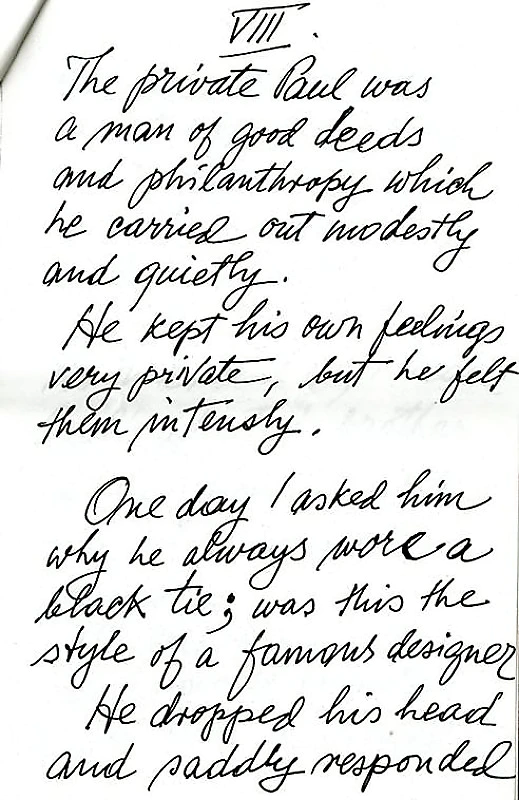 VIII.
The private Paul was
a man of good deeds
and philanthropy which
he carried out modestly
and quietly.
He kept his own feelings
very private, but he felt
them intensly.
One day I asked him
why he always wore a
black tie; was this the
style of a famous designer
He dropped his head
and saddly responded